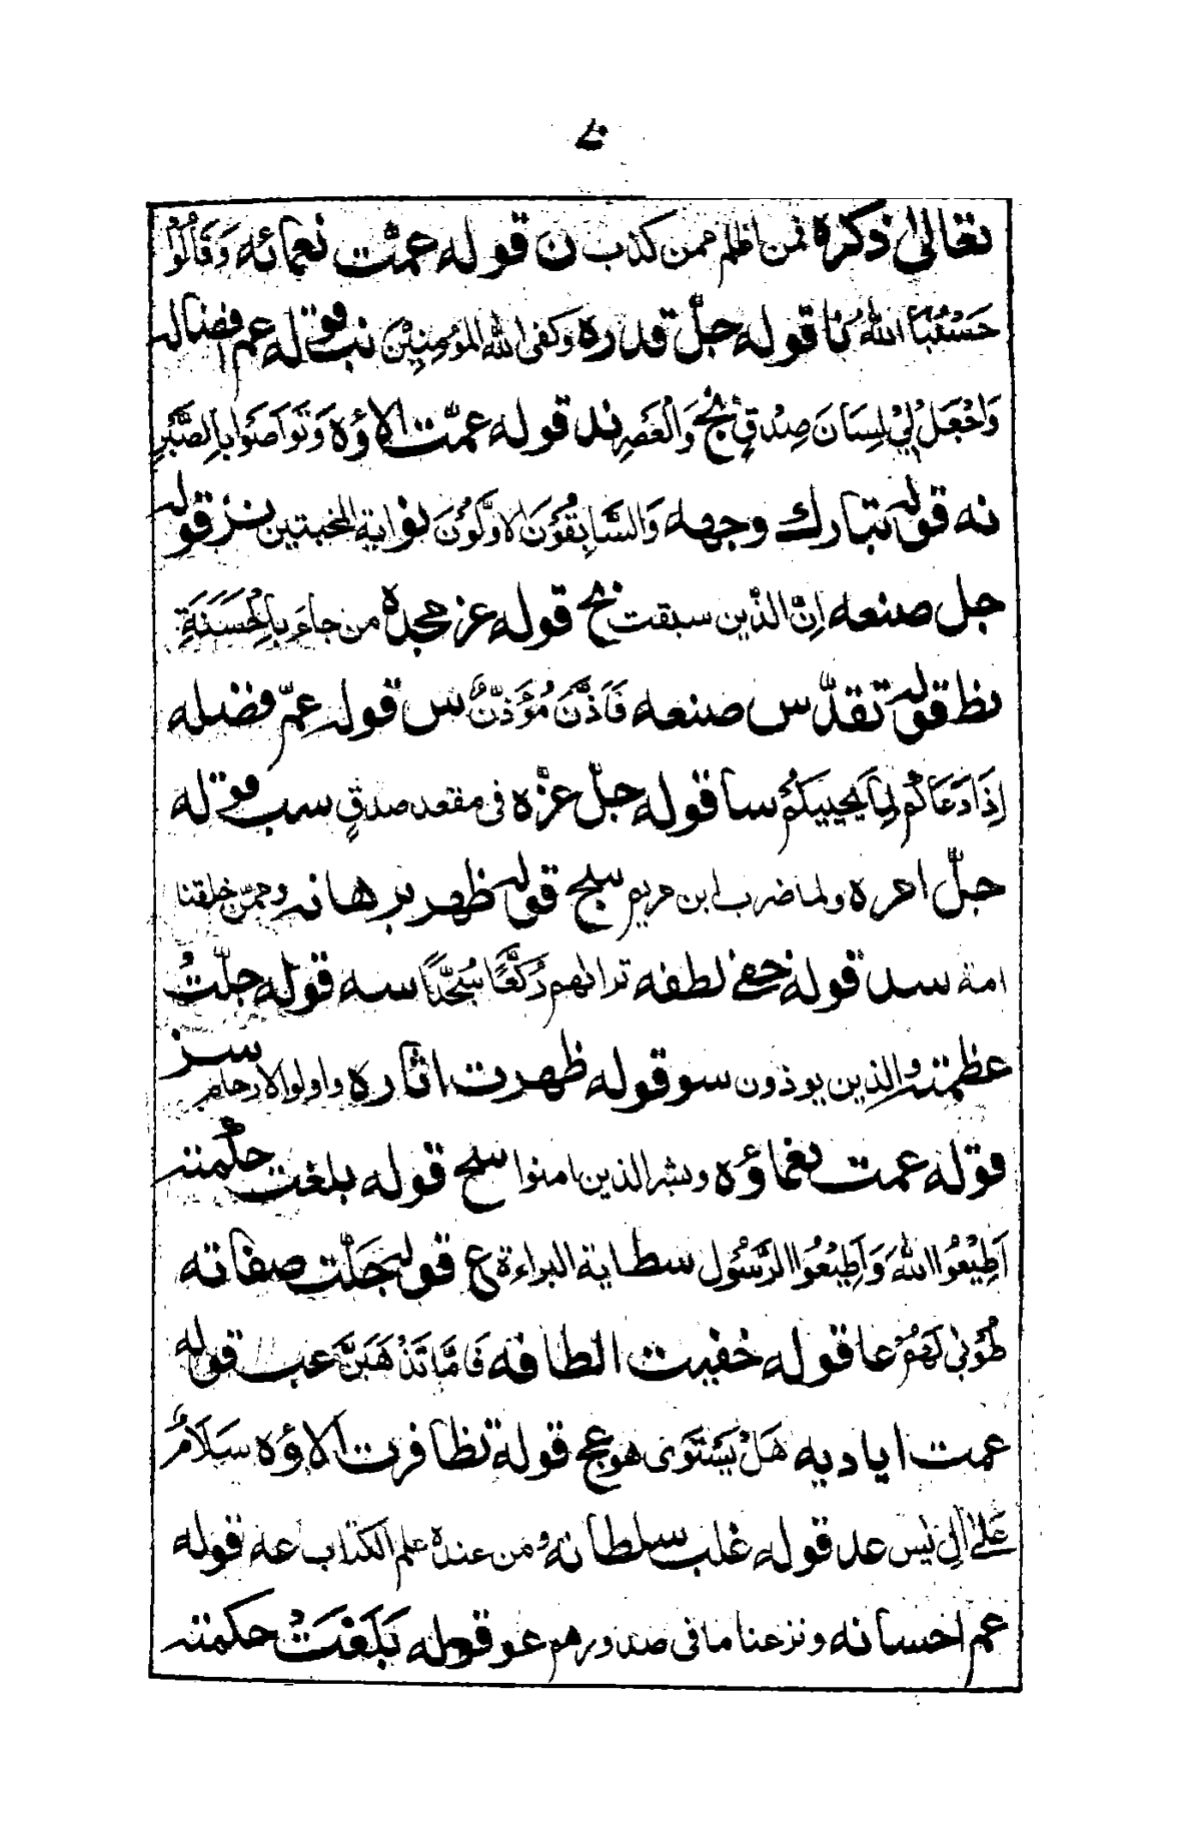 تعالی ذکره فمن اظلم ممن کذب ن قوله عمّت نعمائه وَقَالُوْا
حَسْبُنَا اللهُ نا قوله جلّ قدره وکفی الله المؤمِنِیْنَ نب قوله عم افضاله
وَاجْعَلْ لِيْ لِسَانَ صِدْقٍ نج وَالْعَصْرِ ند قوله عمّت الاؤه وَتَوَاصَوْا بِالصَّبْرِ
نه قوله تبارك وجهه وَالسَّابِقُوْنَ الاوَّلُوْنَ نو اية المخبتین نز قوله
جل صنعه اِنَّ الذّین سبقت نح قوله عز مجده من جاءَ بِالْحَسَنَةِ
نظ قوله تقدّس صنعه فَاَذَّنَ مُؤَذِّنٌ س قوله عمّ فضله
اِذَا دَعَاکُمْ لِمَا یُحْیِیکُمْ سا قوله جلّ عزّه فی مقعد صدقٍ سب قوله
جلّ امره ولما ضرب ابن مریم سج قوله ظهر برهانه وممّن خلقنا
امة سد قوله خفی لطفه تراهم رُکَّعًا سُجَّدًا سه قوله جلّتْ
عظمته والذین یوذون سو قوله ظهرت اثاره واولوا الارحام سز
قوله عمت نعماؤه وبشر الذین امنوا سح قوله بلغت حکمته
اَطِیْعُوا اللهَ وَاَطِیْعُوا الرَّسُوْلَ سط ایة البراءة ع قوله جَلّت صفاته
طُوْبٰی لَهُمْ عا قوله خفیت الطافه فَاِمَّا نَذْهَبَنَّ عب قوله
عمت ایادیه هَلْ یَسْتَوِی هو عج قوله تظافرت الاؤه سَلَامٌ
عَلٰی اٰلِ یٰس عد قوله غلب سلطانه ومن عنده علم الکتاب عه قوله
عم احسانه ونزعنا ما فی صدورهم عو قوله بَلَغَتْ حکمته